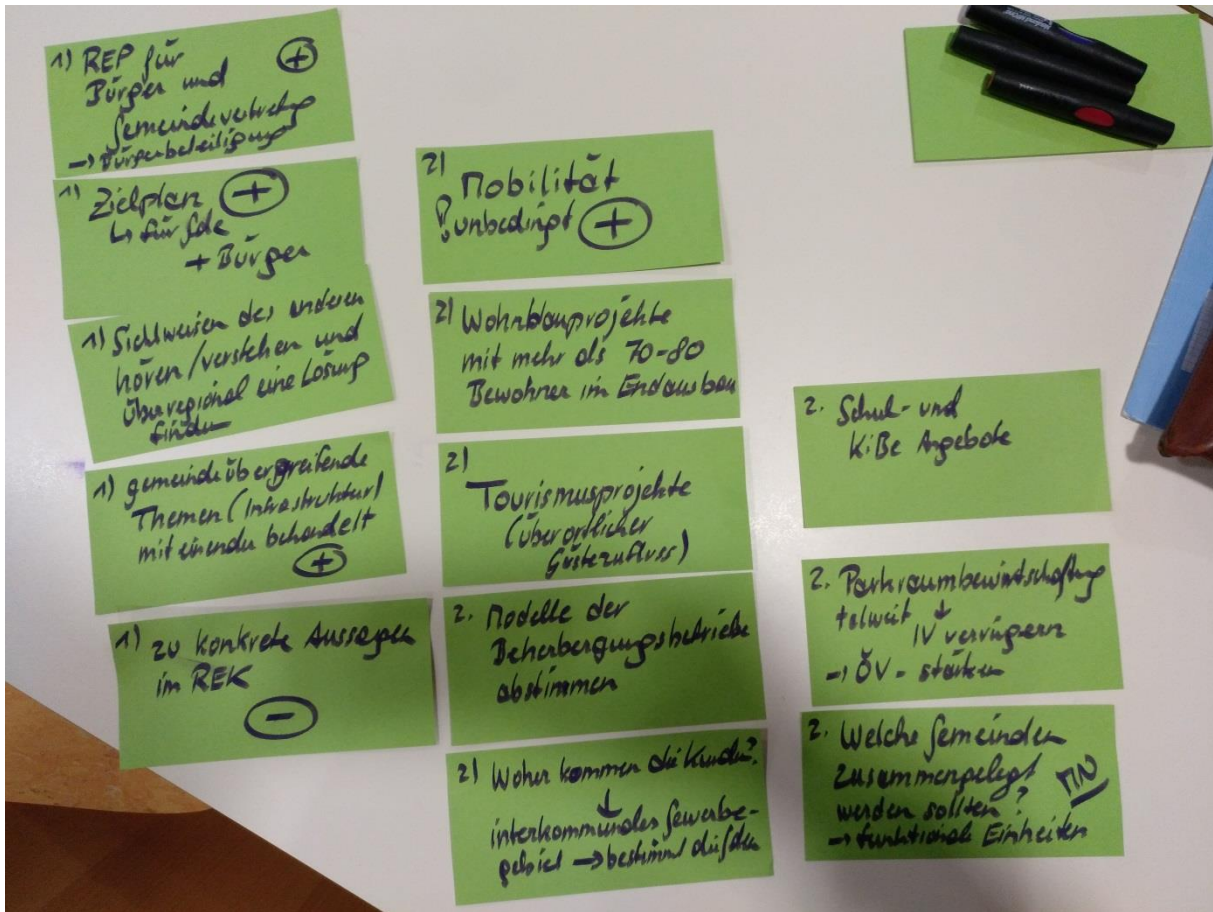 1) REP für
Bürger und
Gemeindevertretung
→ Bürgerbeteiligung
+
1) Zielplan +
↳ für Gde
+ Bürger
1) Sichtweisen des anderen
hören/verstehen und
überregional eine Lösung
finden
1) gemeindeübergreifende
Themen (Infrastruktur)
miteinander behandelt
+
1) zu konkrete Aussagen
im REK
-
2) Mobilität
unbedingt +
2) Wohnbauprojekte
mit mehr als 70-80
Bewohner im Endausbau
2)
Tourismusprojekte
(überörtlicher
Gästezufluss)
2. Modelle der
Beherbergungsbetriebe
abstimmen
2) Woher kommen die Kunden?
↓
interkommunales Gewerbe-
gebiet → bestimmt die
2. Schul- und
KiBe Angebote
2. Parkraumbewirtschaftung
talweit ↓
IV verringern
→ ÖV - stärken
2. Welche Gemeinden
zusammengelegt
werden sollten?
→ funktionale Einheiten